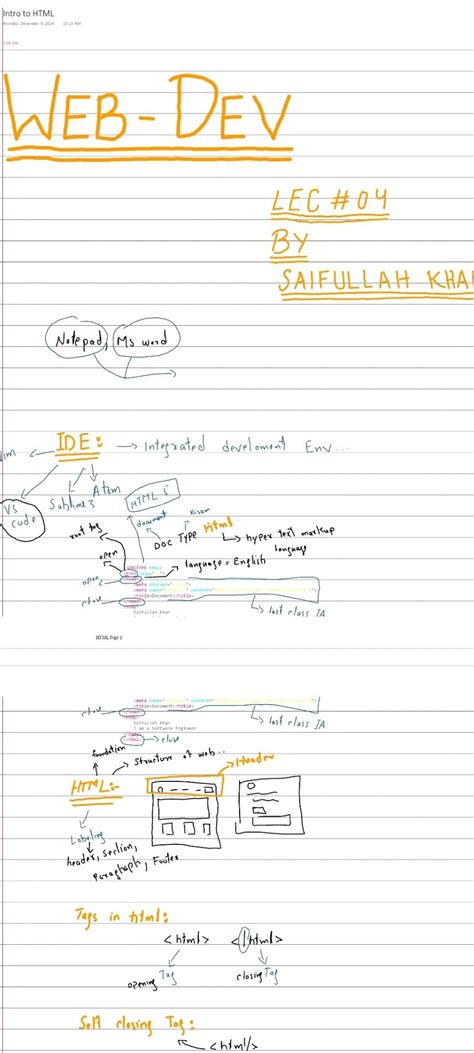 Intro to HTML
Monday, December 9, 2024 10:01 AM
WEB-DEV
LEC #04
BY
SAIFULLAH KHA
Notepad, Ms word
IDE: → Integrated develoment Env...
Sublime 3
Atom
VS code
HTML 5
document
Kisam
DOC TYPE html
hyper text markup language
root tag
open
language = English
<!DOCTYPE html>
open
<title>Document</title>
close
last class JA
Saifullah Khan
HTML Page 1
<title>Document</title>
close
last class JA
Saifullah Khan
I am a Software Engineer
</html> → close
foundation
Structure of web..
Header
HTML:-
Labeling
header, section,
paragraph, Footer
Tags in html:
<html> </html>
opening Tag closing Tag
Self closing Tag:
<html/>